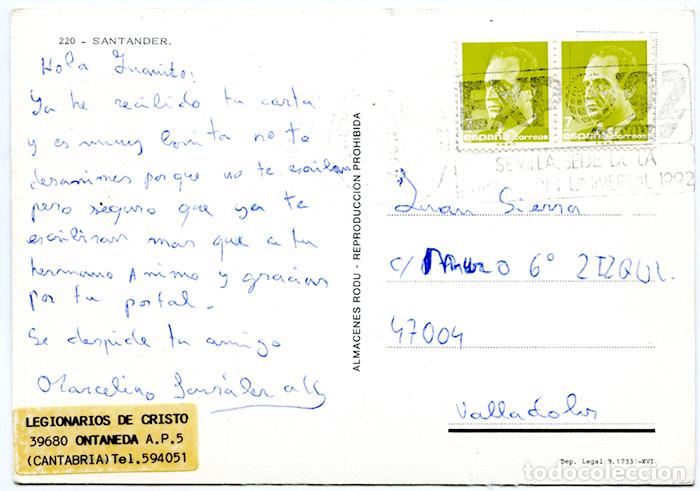 220 - SANTANDER.
Hola Juanito:
Ya he recibido tu carta
y es muy bonita no te
desanimes porque no te escriban
pero seguro que ya te
escribiran mas que a tu
hermano Animo y gracias
por tu postal.
Se despide tu amigo
Marcelino González
LEGIONARIOS DE CRISTO
39680 ONTANEDA A.P.5
(CANTABRIA) Tel.594051
ALMACENES RODU - REPRODUCCIÓN PROHIBIDA
españa correos
7
españa correos
92
SEVILLA, SEDE DE LA
UNIVERSAL 1992
Juan Sierra
c/ 6º 2 IZQUI.
47004
Valladolid
Dep. Legal B.1733-XVI
todocoleccion